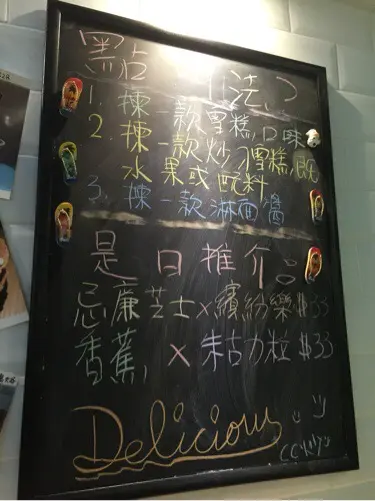 點 法?
1. 揀一款雪糕口味
2. 揀一款炒雪糕既
水果或配料
3. 揀一款淋面醬
是日推介。
忌廉芝士x繽紛樂$33
香蕉x朱古力粒$33
Delicious